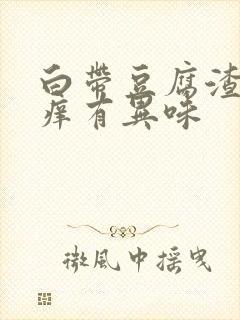 白带豆腐渣
痒有異味
微风中摇曳